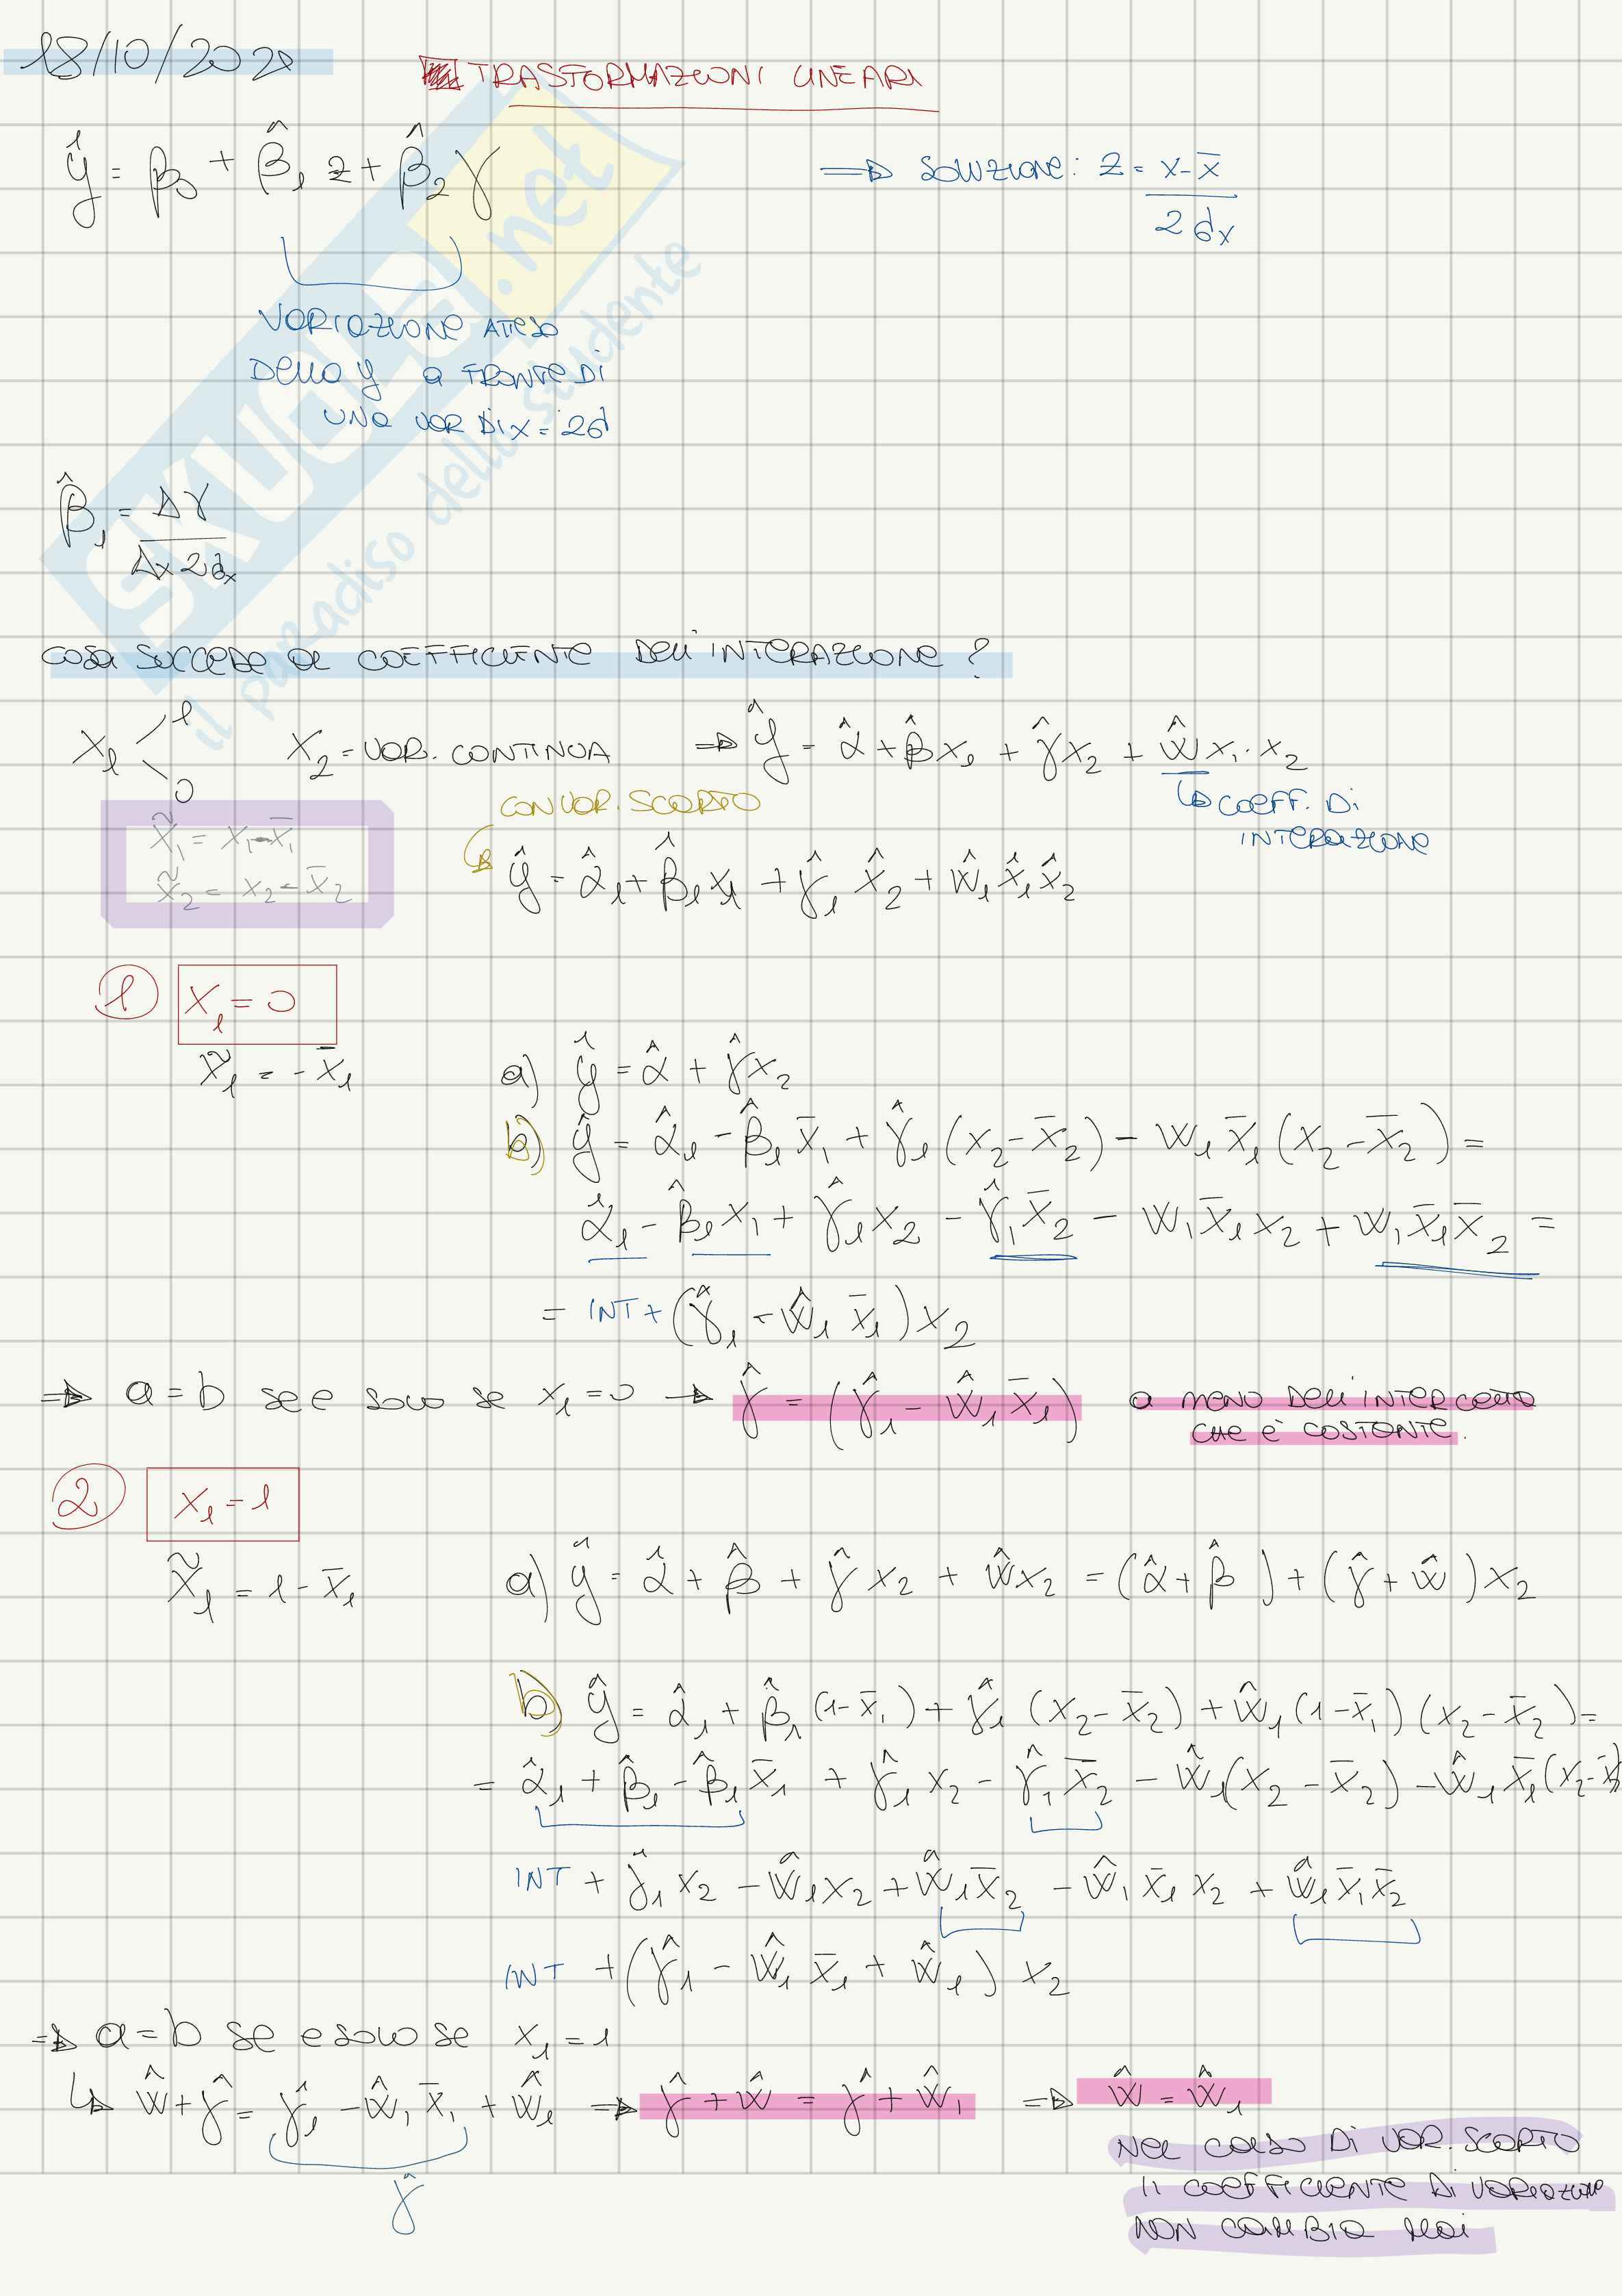 18/10/202
TRASTORMAZIONI LINEARI
ŷ = β0 + β̂1 z + β̂2 γ
⇒ SOLUZIONE: z = x - x̄
2σx
VARIAZIONE ATTESA
DELLA y A FRONTE DI
UNA VAR DI x = 2σ
β̂1 = Δγ
Δx 2σx
COSA SUCCEDE AL COEFFICIENTE DELL'INTERAZIONE ?
x1 < 1 0 x2 = VAR. CONTINUA ⇒ ŷ = α̂ + β̂x1 + γ̂x2 + ŵx1·x2
CON VAR. SCARTO
↳ COEFF. DI
INTERAZIONE
x̃1 = x1 - x̄1
x̃2 = x2 - x̄2
ŷ = α̂1 + β̂1x1 + γ̂1 x̂2 + ŵ1 x̂1 x̂2
① x1 = 0
x̃1 = -x̄1
a) ŷ = α̂ + γ̂x2
b) ŷ = α̂1 - β̂1 x̄1 + γ̂1(x2 - x̄2) - w1 x̄1(x2 - x̄2) =
α̂1 - β̂1x1 + γ̂1x2 - γ̂1x̄2 - w1x̄1x2 + w1x̄1x̄2 =
= INT + (γ̂1 - ŵ1 x̄1)x2
⇒ a = b SE E SOLO SE x1 = 0 → γ̂ = (γ̂1 - ŵ1 x̄1) A MENO DELL'INTERCETTA
CHE È COSTANTE.
② x1 = 1
x̃1 = 1 - x̄1
a) ŷ = α̂ + β̂ + γ̂ x2 + ŵx2 = (α̂ + β̂) + (γ̂ + ŵ)x2
b) ŷ = α̂1 + β̂1(1 - x̄1) + γ̂1(x2 - x̄2) + ŵ1(1 - x̄1)(x2 - x̄2) =
= α̂1 + β̂1 - β̂1 x̄1 + γ̂1 x2 - γ̂1 x̄2 - ŵ1(x2 - x̄2) - ŵ1 x̄1(x2 - x̄
INT + γ̂1 x2 - ŵ1x2 + ŵ1x̄2 - ŵ1 x̄1 x2 + ŵ1 x̄1x̄2
INT + (γ̂1 - ŵ1 x̄1 + ŵ1) x2
⇒ a = b SE E SOLO SE x1 = 1
↳ ŵ + γ̂ = γ̂1 - ŵ1 x̄1 + ŵ1 ⇒ γ̂ + ŵ = γ̂ + ŵ1 ⇒ ŵ = ŵ1
γ̂
NEL CASO DI VAR. SCARTO
IL COEFFICIENTE DI VARIAZIONE
NON CAMBIA MAI
SKUOLA.net
il paradiso dello studente